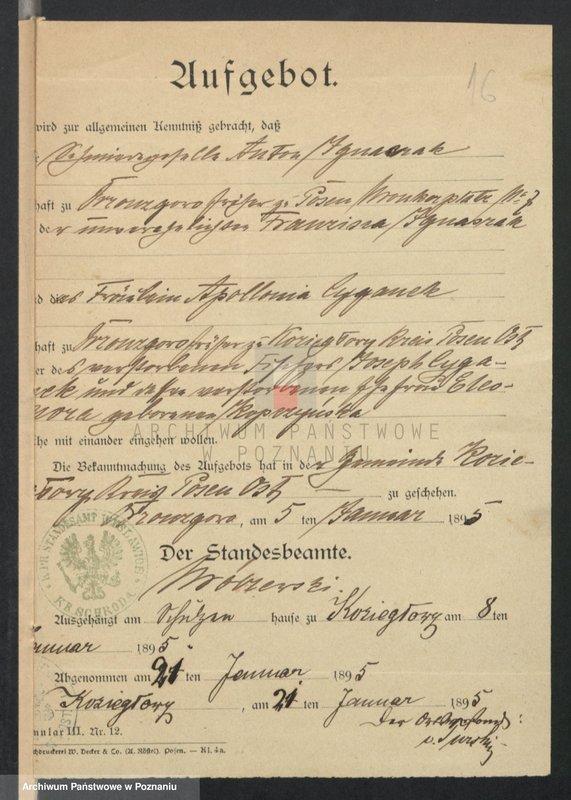 16
Aufgebot.
wird zur allgemeinen Kenntniß gebracht, daß
Schmiedegeselle Anton Ignaczak
haft zu früher zu Posen
der unverehelichten Franziska Ignaczak
d das Fräulein Apollonia Cyganek
haft zu früher zu Koziegłowy Kreis Posen Ost
er des verstorbenen Joseph Cyga-
nek und dessen verstorbenen Ehefrau Eleo-
nora geborenen Kopczyńska
che mit einander eingehen wollen.
Die Bekanntmachung des Aufgebots hat in der Gemeinde Kozie-
głowy Kreis Posen Ost zu geschehen.
, am 5 ten Januar 1895
Der Standesbeamte.
K. PR. STANDESAMT
KR. SCHRODA
Ausgehängt am Schulzen hause zu Koziegłowy am 8 ten
Januar 1895
Abgenommen am 21 ten Januar 1895
Koziegłowy, am 21 ten Januar 1895
Der Ortsvorstand:
mular III. Nr. 12.
chdruckerei W. Decker & Co. (A. Röstel). Posen. — Kl. 4a.
ARCHIWUM PAŃSTWOWE
W POZNANIU
Archiwum Państwowe w Poznaniu